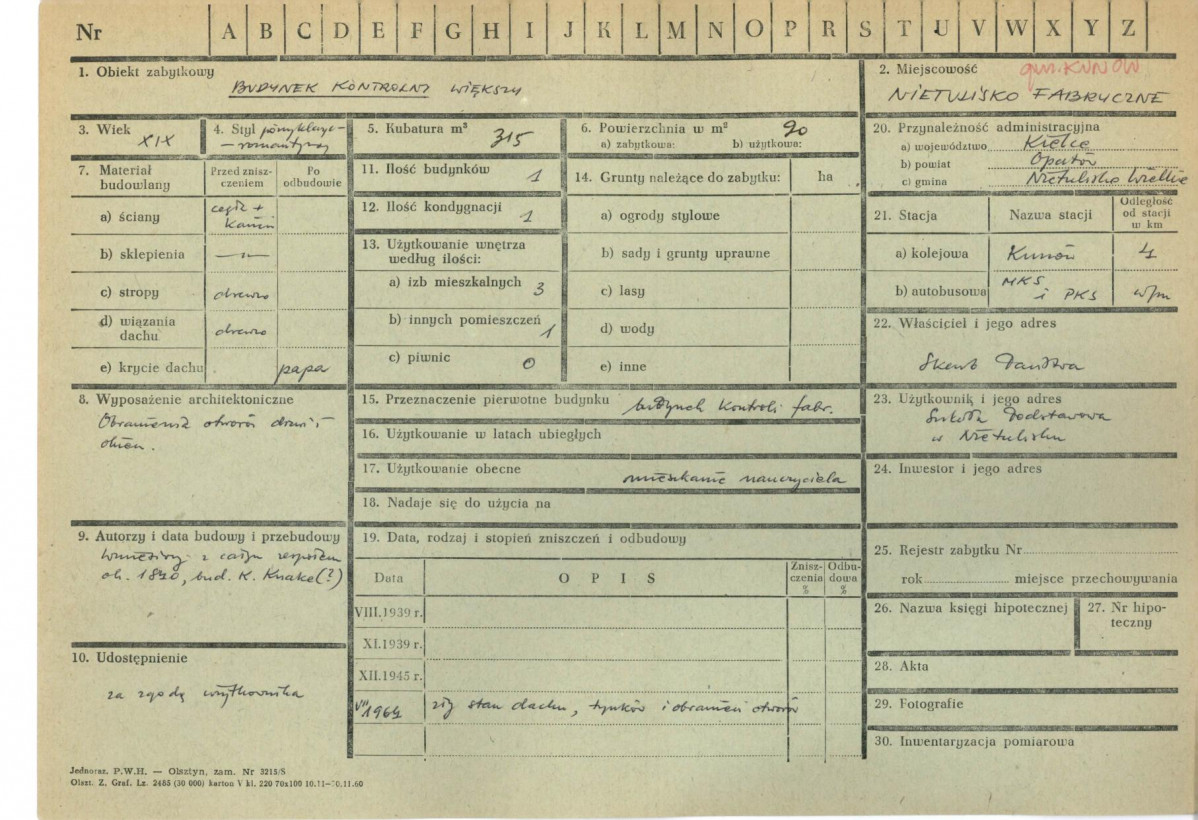 Nr A B C D E F G H I J K L M N O P R S T U V W X Y Z
1. Obiekt zabytkowy
BUDYNEK KONTROLNY WIĘKSZY
2. Miejscowość
gm. KUNÓW
NIETULISKO FABRYCZNE
3. Wiek
XIX
4. Styl
– romantyczny
5. Kubatura m³
315
6. Powierzchnia w m²
90
a) zabytkowa: b) użytkowa:
20. Przynależność administracyjna
a) województwo Kielce
b) powiat Opatów
c) gmina Nietulisko Wielkie
7. Materiał
budowlany
Przed znisz-
czeniem
Po
odbudowie
a) ściany
cegła +
kamień
b) sklepienia
—„—
c) stropy
drewno
d) wiązania
dachu
drewno
e) krycie dachu
papa
11. Ilość budynków
1
12. Ilość kondygnacji
1
13. Użytkowanie wnętrza
według ilości:
a) izb mieszkalnych 3
b) innych pomieszczeń
1
c) piwnic
0
14. Grunty należące do zabytku: ha
a) ogrody stylowe
b) sady i grunty uprawne
c) lasy
d) wody
e) inne
21. Stacja
Nazwa stacji
Odległość
od stacji
w km
a) kolejowa Kunów 4
b) autobusowa MKS
i PKS w/m
22. Właściciel i jego adres
Skarb Państwa
8. Wyposażenie architektoniczne
Obramienia otworów drzwi i
okien.
15. Przeznaczenie pierwotne budynku budynek kontroli fabr.
16. Użytkowanie w latach ubiegłych
17. Użytkowanie obecne
mieszkanie nauczyciela
18. Nadaje się do użycia na
23. Użytkownik i jego adres
Szkoła Podstawowa
w Nietulisku
24. Inwestor i jego adres
9. Autorzy i data budowy i przebudowy
Wzniesiony z całym zespołem
ok. 1840, bud. K. Knake (?)
10. Udostępnienie
za zgodą użytkownika
19. Data, rodzaj i stopień zniszczeń i odbudowy
Data
O P I S
Znisz-
czenia
%
Odbu-
dowa
%
VIII.1939 r.
XI.1939 r.
XII.1945 r.
VII
1964 zły stan dachu, tynków i obramień otworów
25. Rejestr zabytku Nr
rok miejsce przechowywania
26. Nazwa księgi hipotecznej
27. Nr hipo-
teczny
28. Akta
29. Fotografie
30. Inwentaryzacja pomiarowa
Jednoraz. P.W.H. — Olsztyn, zam. Nr 3215/S
Olszt. Z. Graf. Lz. 2485 (30 000) karton V kl. 220 70x100 10.11–30.11.60